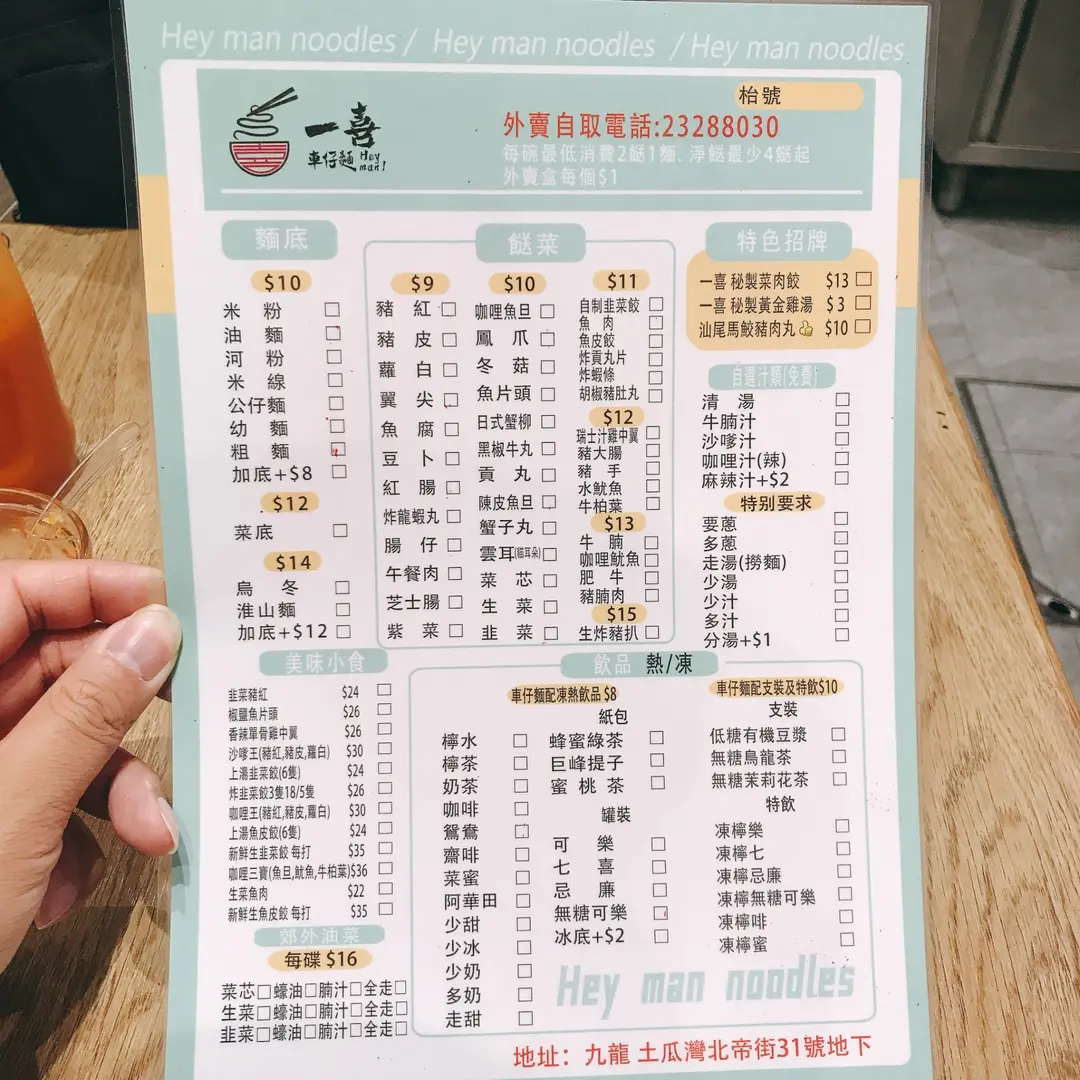 Hey man noodles / Hey man noodles / Hey man noodles
一喜
車仔麵 Hey man!
枱號
外賣自取電話:23288030
每碗最低消費2餸1麵. 淨餸最少4餸起
外賣盒每個$1
麵底
$10
米 粉 □
油 麵 □
河 粉 □
米 線 □
公仔麵 □
幼 麵 □
粗 麵 □
加底+$8 □
$12
菜底 □
$14
烏 冬 □
淮山麵 □
加底+$12 □
餸菜
$9
豬 紅 □
豬 皮 □
蘿 白 □
翼 尖 □
魚 腐 □
豆 卜 □
紅 腸 □
炸龍蝦丸 □
腸 仔 □
午餐肉 □
芝士腸 □
紫 菜 □
$10
咖哩魚旦 □
鳳 爪 □
冬 菇 □
魚片頭 □
日式蟹柳 □
黑椒牛丸 □
貢 丸 □
陳皮魚旦 □
蟹子丸 □
雲耳(貓耳朵) □
菜 芯 □
生 菜 □
韭 菜 □
$11
自制韭菜餃 □
魚 肉 □
魚皮餃 □
炸貢丸片 □
炸蝦條 □
胡椒豬肚丸 □
$12
瑞士汁雞中翼 □
豬大腸 □
豬 手 □
水魷魚 □
牛柏葉 □
$13
牛 腩 □
咖哩魷魚 □
肥 牛 □
豬腩肉 □
$15
生炸豬扒 □
特色招牌
一喜 秘製菜肉餃 $13 □
一喜 秘製黃金雞湯 $3 □
汕尾馬鮫豬肉丸👍 $10 □
自選汁類(免費)
清 湯 □
牛腩汁 □
沙嗲汁 □
咖哩汁(辣) □
麻辣汁+$2 □
特別要求
要蔥 □
多蔥 □
走湯(撈麵) □
少湯 □
少汁 □
多汁 □
分湯+$1 □
美味小食
韭菜豬紅 $24 □
椒鹽魚片頭 $26 □
香辣單骨雞中翼 $26 □
沙嗲王(豬紅,豬皮,蘿白) $30 □
上湯韭菜餃(6隻) $24 □
炸韭菜餃3隻18/5隻 $26 □
咖哩王(豬紅,豬皮,蘿白) $30 □
上湯魚皮餃(6隻) $24 □
新鮮生韭菜餃 每打 $35 □
咖哩三寶(魚旦,魷魚,牛柏葉)$36 □
生菜魚肉 $22 □
新鮮生魚皮餃 每打 $35 □
郊外油菜
每碟 $16
菜芯□蠔油□腩汁□全走□
生菜□蠔油□腩汁□全走□
韭菜□蠔油□腩汁□全走□
飲品 熱/凍
車仔麵配凍熱飲品 $8
檸水 □
檸茶 □
奶茶 □
咖啡 □
鴛鴦 □
齋啡 □
菜蜜 □
阿華田 □
少甜 □
少冰 □
少奶 □
多奶 □
走甜 □
紙包
蜂蜜綠茶 □
巨峰提子 □
蜜 桃 茶 □
罐裝
可 樂 □
七 喜 □
忌 廉 □
無糖可樂 □
冰底+$2 □
車仔麵配支裝及特飲$10
支裝
低糖有機豆漿 □
無糖烏龍茶 □
無糖茉莉花茶 □
特飲
凍檸樂 □
凍檸七 □
凍檸忌廉 □
凍檸無糖可樂 □
凍檸啡 □
凍檸蜜 □
Hey man noodles
地址: 九龍 土瓜灣北帝街31號地下